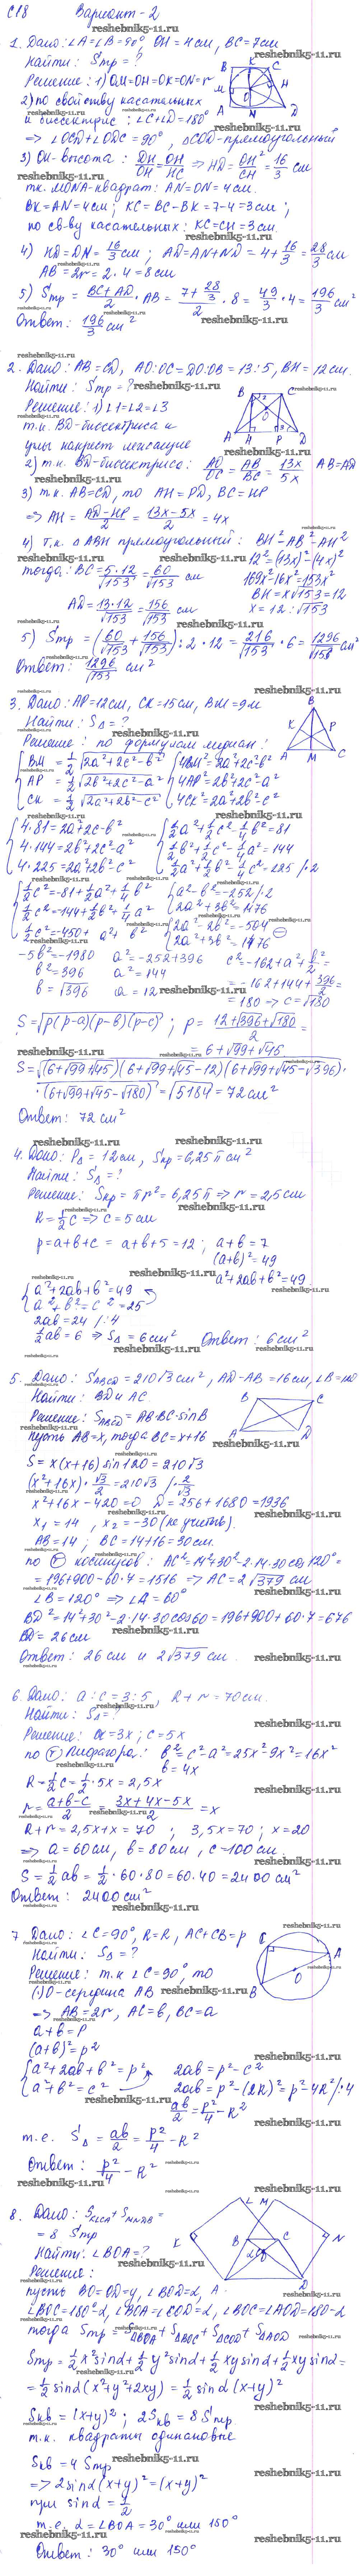 С18 Вариант-2
1. Дано: ∠A=∠B=90° OH=4см, BC=7см
Найти: Sтр=?
Решение: 1) OM=OH=OK=ON=r
2) по свойству касательных
и биссектрис: ∠C+∠D=180°
⇒ ∠OCD+∠ODC=90°, △COD-прямоугольный
3) OH-высота: DH/OH=OH/HC ⇒ HD=OH²/CH=16/3 см
т.к. MONA-квадрат: AN=ON=4см.
BK=AN=4см; KC=BC-BK=7-4=3см;
по св-ву касательных: KC=CH=3см.
4) HD=DN=16/3см; AD=AN+ND=4+16/3=28/3см
AB=2r=2·4=8см
5) Sтр=(BC+AD)/2·AB=(7+28/3)/2·8=49/3·4=196/3 см²
Ответ: 196/3 см²
2. Дано: AB=CD, AO:OC=DO:OB=13:5, BH=12см.
Найти: Sтр=?
Решение: 1) ∠1=∠2=∠3
т.к. BD-биссектриса и
углы накрест лежащие
2) т.к. BD-биссектриса: AO/OC=AB/BC=13x/5x AB=AD
3) т.к. AB=CD, то AH=PD, BC=HP
⇒ AH=(AD-HP)/2=(13x-5x)/2=4x
4) т.к. △ABH прямоугольный: BH²=AB²-AH²
12²=(13x)²-(4x)²
169x²-16x²=153x²
BH=x√153=12
x=12:√153
тогда: BC=5·12/√153=60/√153 см
AD=13·12/√153=156/√153 см
5) Sтр=(60/√153+156/√153):2·12=216/√153·6=1296/√153 см²
Ответ: 1296/√153 см²
3. Дано: AP=12см, CK=15см, BM=9м
Найти: S△=?
Решение: по формулам медиан:
BM=1/2√(2a²+2c²-b²) 4BM²=2a²+2c²-b²
AP=1/2√(2b²+2c²-a²) 4AP²=2b²+2c²-a²
CK=1/2√(2a²+2b²-c²) 4CK²=2a²+2b²-c²
4·81=2a²+2c²-b² 1/2a²+1/2c²-1/4b²=81
4·144=2b²+2c²-a² 1/2b²+1/2c²-1/4a²=144
4·225=2a²+2b²-c² 1/2a²+1/2b²-1/4c²=225 /·2
1/2c²=81-1/2a²+1/4b² a²-b²=-252/·2
1/2c²=144-1/2b²+1/4a² 2a²+3b²=1476
1/2c²=-450+a²+b² 2a²-2b²=-504
2a²+3b²=1476
-5b²=-1980 a²=-252+396 c²=162-a²+b²/2=
b²=396 a²=144 =162-144+396/2=
b=√396 a=12 =180→c=√180
S=√(p(p-a)(p-b)(p-c)); p=(12+√396+√180)/2=
=6+√99+√45
S=√((6+√99+√45)(6+√99+√45-12)(6+√99+√45-√396)·
·(6+√99+√45-√180))=√5184=72см²
Ответ: 72см²
4. Дано: P△=12см, Sкр=6,25π см²
Найти: S△=?
Решение: Sкр=πr²=6,25π ⇒ r=2,5см
R=1/2c ⇒ c=5см
p=a+b+c=a+b+5=12; a+b=7
(a+b)²=49
a²+2ab+b²=49.
a²+2ab+b²=49
a²+b²=c²=25
2ab=24 /:4
1/2ab=6 ⇒ S△=6см² Ответ: 6см²
5. Дано: SABCD=210√3 см², AD-AB=16см, ∠B=120
Найти: BD и AC.
Решение: SABCD=AB·BC·sinB
пусть AB=x, тогда BC=x+16
S=x(x+16)sin120=210√3
(x²+16x)·√3/2=210√3 /·2/√3
x²+16x-420=0 D=256+1680=1936
x₁=14, x₂=-30 (не учитыв).
AB=14; BC=14+16=30см.
по Т косинусов: AC²=14²+30²-2·14·30cos120°=
=196+900-60·7=1516 ⇒ AC=2√379 см
∠B=120° ⇒ ∠A=60°
BD²=14²+30²-2·14·30cos60=196+900+60·7=676
BD=26см
Ответ: 26см и 2√379 см.
6. Дано: a:c=3:5, R+r=70см.
Найти: S△=?
Решение: a=3x; c=5x
по Т Пифагора: b²=c²-a²=25x²-9x²=16x²
b=4x
R=1/2c=1/2·5x=2,5x
r=(a+b-c)/2=(3x+4x-5x)/2=x
R+r=2,5x+x=70; 3,5x=70; x=20
⇒ a=60см, b=80см, c=100см.
S=1/2ab=1/2·60·80=60·40=2400см²
Ответ: 2400см²
7. Дано: ∠C=90°, R=R, AC+CB=p
Найти: S△=?
Решение: т.к ∠C=90°, то
(·)O-середина AB
⇒ AB=2r, AC=b, BC=a
a+b=p
(a+b)²=p²
a²+2ab+b²=p² 2ab=p²-c²
a²+b²=c² 2ab=p²-(2R)²=p²-4R²/:4
ab/2=p²/4-R²
т.е. S△=ab/2=p²/4-R²
Ответ: p²/4-R²
8. Дано: SKLCA+SMNDB=
=8 Sтр
Найти: ∠BOA=?
Решение:
пусть BO=OD=y, ∠BOD=α,
∠BOC=180°-α, ∠BOA=∠COD=α, ∠BOC=∠AOD=180-α
тогда Sтр=S△BOA+S△BOC+S△COD+S△AOD
Sтр=1/2x²sinα+1/2y²sinα+1/2xysinα+1/2xysinα=
=1/2sinα(x²+y²+2xy)=1/2sinα(x+y)²
Sкв=(x+y)²; 2Sкв=8Sтр
т.к. квадраты одинаковые
Sкв=4Sтр
⇒ 2sinα(x+y)²=(x+y)²
при sinα=1/2
т.е. α=∠BOA=30° или 150°
Ответ: 30° или 150°
reshebnik5-11.ru